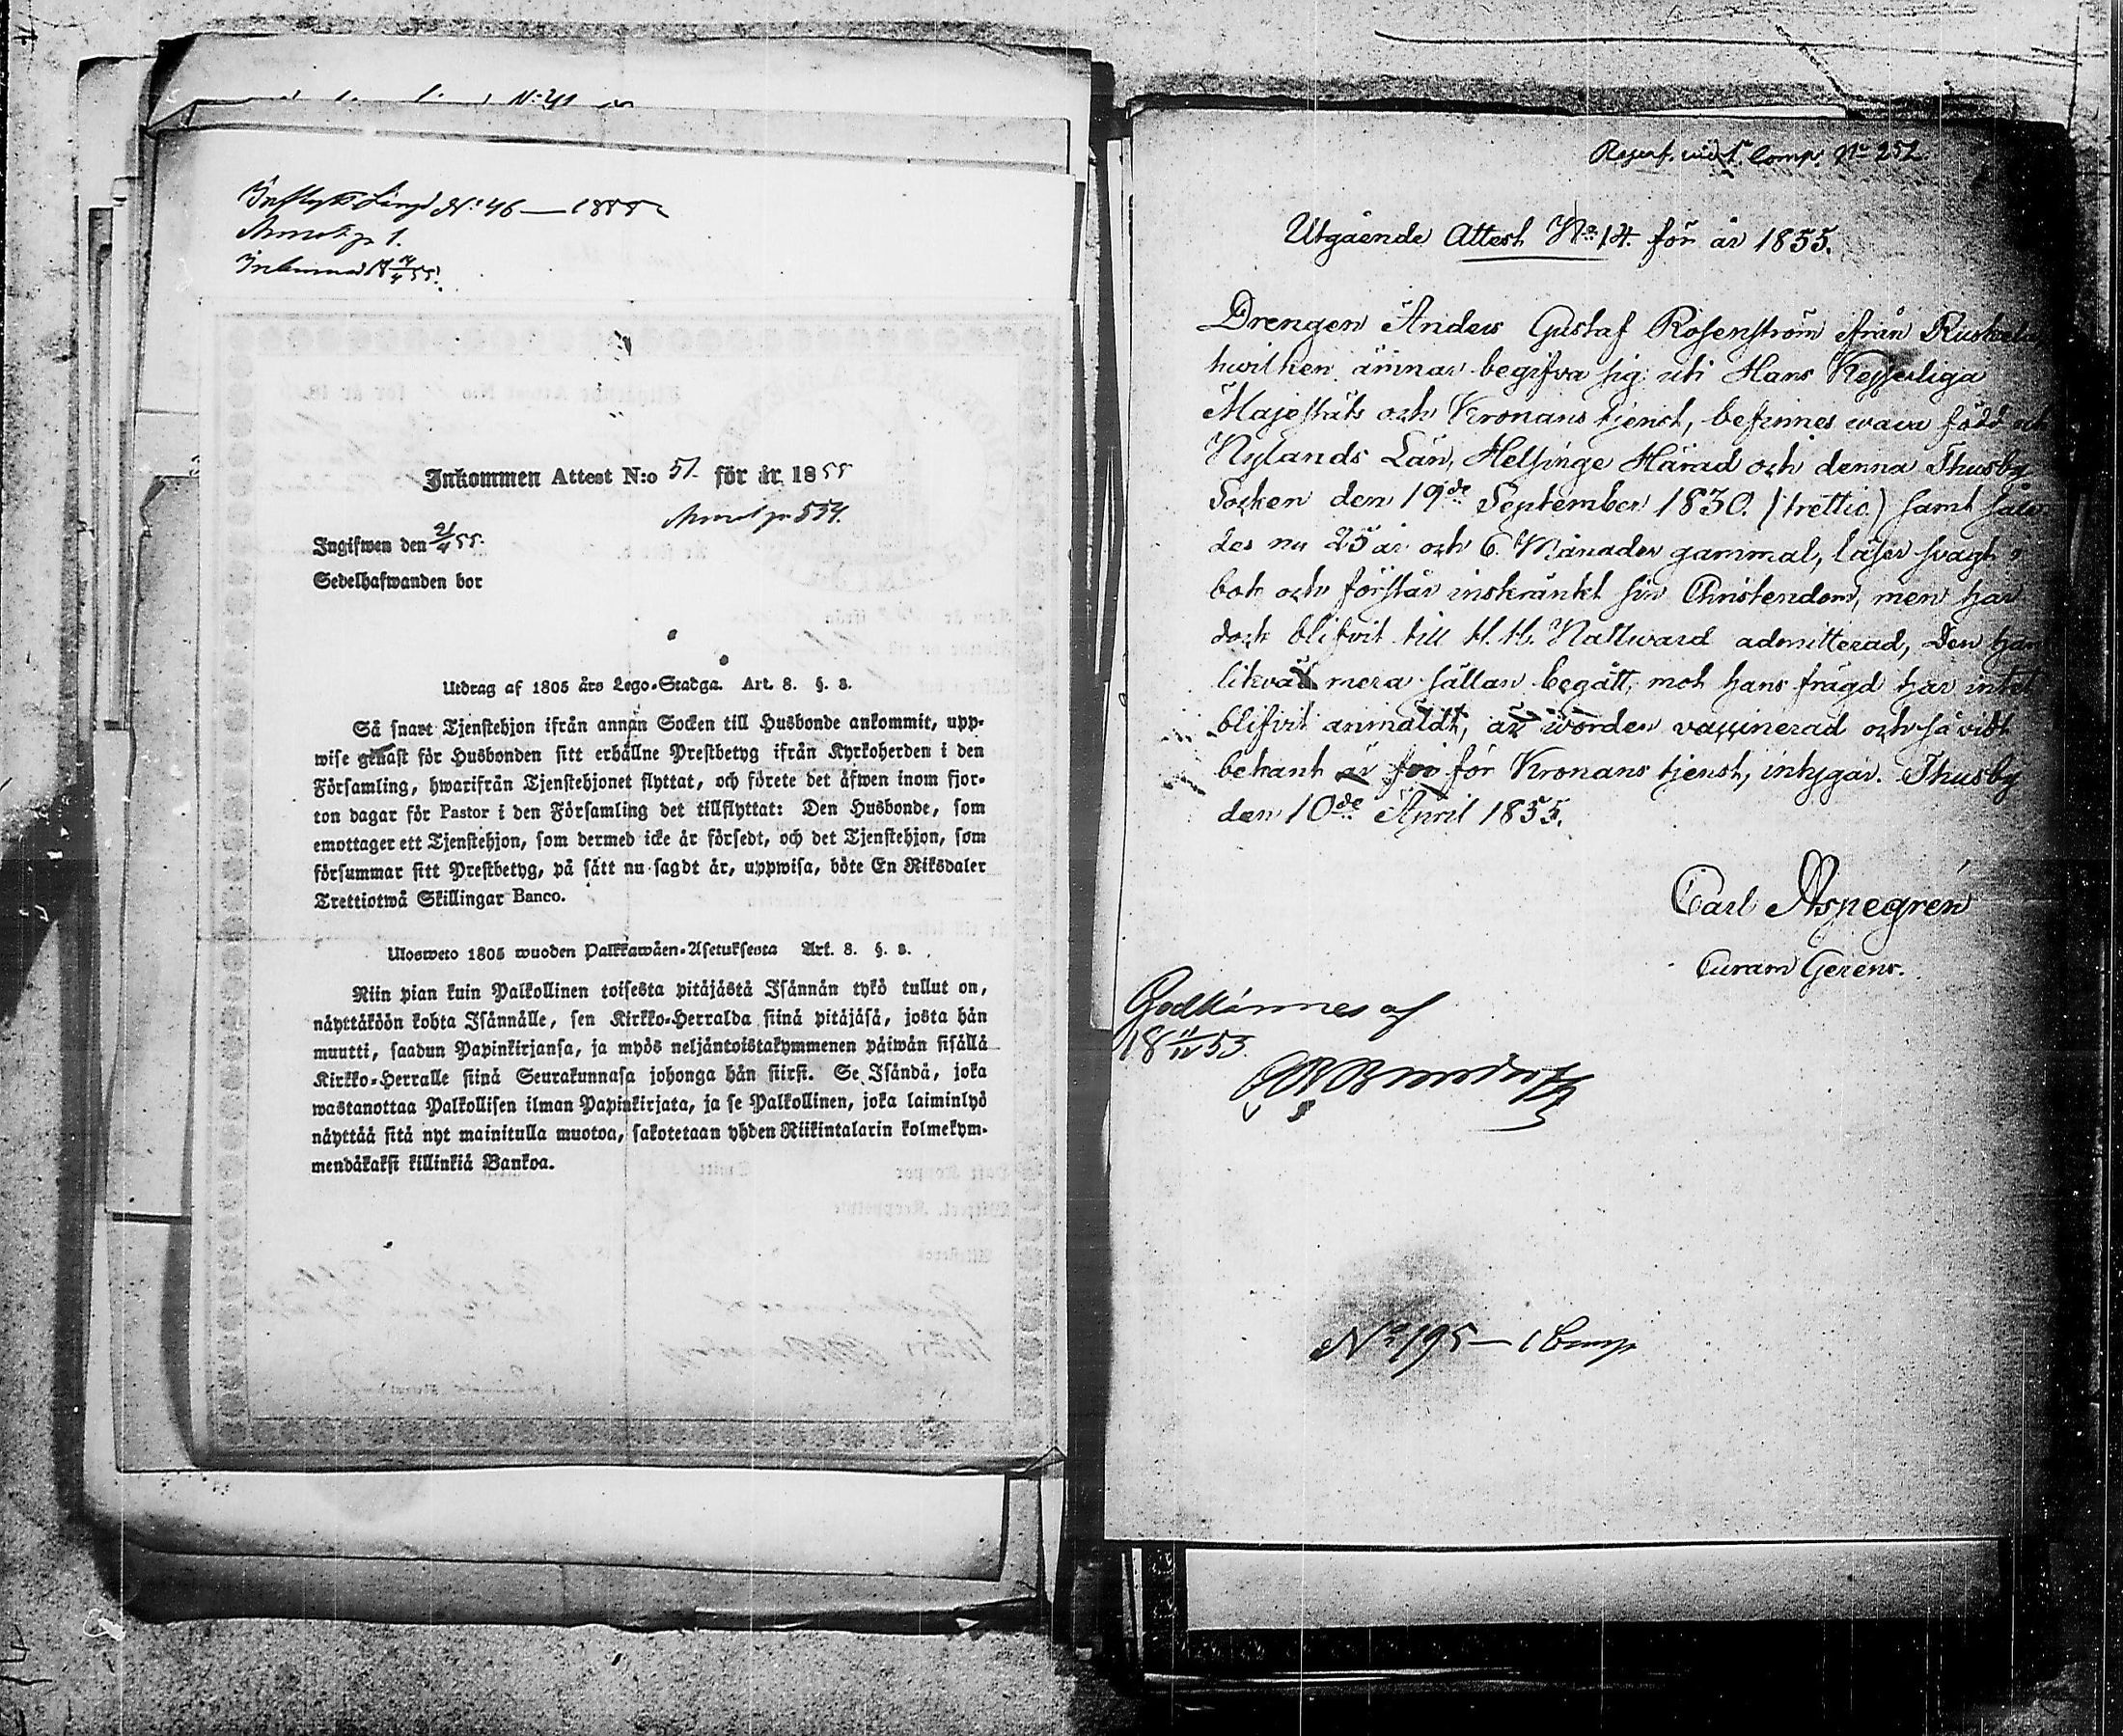 N:o 41
Inflytt. Längd N:o 46 — 1855
p 1.
Inkommen Attest N:o 51. för år 1855
p 554.
Ingifwen den 21/4 55.
Sedelhafwanden bor
Utdrag af 1805 års Lego-Stadga. Art. 8. §. 3.
Så snart Tjenstehjon ifrån annan Socken till Husbonde ankommit, upp-
wise genast för Husbonden sitt erhållne Prestbetyg ifrån Kyrkoherden i den
Församling, hwarifrån Tjenstehjonet flyttat, och förete det äfwen inom fjor-
ton dagar för Pastor i den Församling det tillflyttat: Den Husbonde, som
emottager ett Tjenstehjon, som dermed icke är försedt, och det Tjenstehjon, som
försummar sitt Prestbetyg, på sätt nu sagdt är, uppwisa, böte En Riksdaler
Trettiotwå Skillingar Banco.
Ulosweto 1805 wuoden Palkkawäen-Asetuksesta Art. 8. §. 3.
Niin pian kuin Palkollinen toisesta pitäjästä Isännän tykö tullut on,
näyttäköön kohta Isännälle, sen Kirkko-Herralda siinä pitäjäsä, josta hän
muutti, saadun Papinkirjansa, ja myös neljäntoistakymmenen päiwän sisällä
Kirkko-Herralle siinä Seurakunnasa johonga hän siirsi. Se Isändä, joka
wastanottaa Palkollisen ilman Papinkirjata, ja se Palkollinen, joka laiminlyö
näyttää sitä nyt mainitulla muotoa, sakotetaan yhden Riikintalarin kolmekym-
mendäkaksi killinkiä Bankoa.
vid 1 Comp. No 252
Utgående Attest No 14. för år 1855.
Drengen Anders Gustaf Rosenström ifrån Ruskela
hwilken ämnar begifva sig uti Hans Kejserliga
Majestäts och Kronans tjenst, befinnes wara född uti
Nylands Län, Helsinge Härad och denna Thusby
Socken den 19de September 1830. (trettio) samt såle-
des nu 25 år och 6. Månader gammal, läser svagt i
bok och förstår inskränkt sin Christendom, men har
dock blifvit till H. H. Nattward admitterad, den han
likväl mera sällan begått; mot hans frägd har intet
blifvit anmäldt, är worden vaccinerad och så vidt
bekant är för Kronans tjenst, intygar. Thusby
den 10de April 1855.
Carl Aspegrén
Curam Gerens.
Godkännes af
18 11/IV 55.
No 195 — 1 Comp